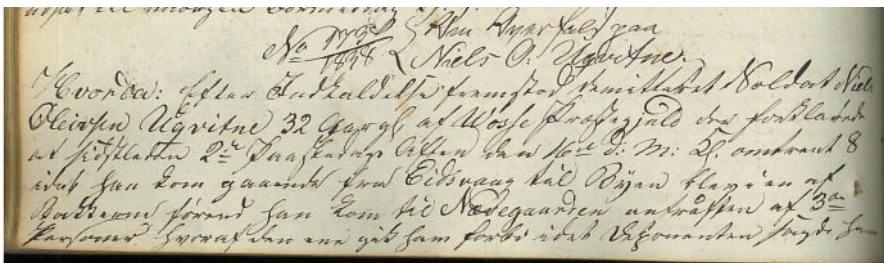 til Morgen Formiddag
No 173 / 1838 { Om Overfald paa
Niels O. Ugvitne.
Hvorda: Efter Indkaldelse fremstod demitteret Soldat Niels
Oleivsen Ugvitne 32 Aar gl. af Wosse Præstegjeld der forklarede
at sidstleden 2den Paaskedags Aften den 16de d: M: Kl. omtrent 8
idet han kom gaaende fra Eidsvaag til Byen blev i en af
Bakkerne førend han kom til Nædegaarden antruffen af 3de
Personer, hvoraf den ene gik ham forbi idet Deponenten sagde ham